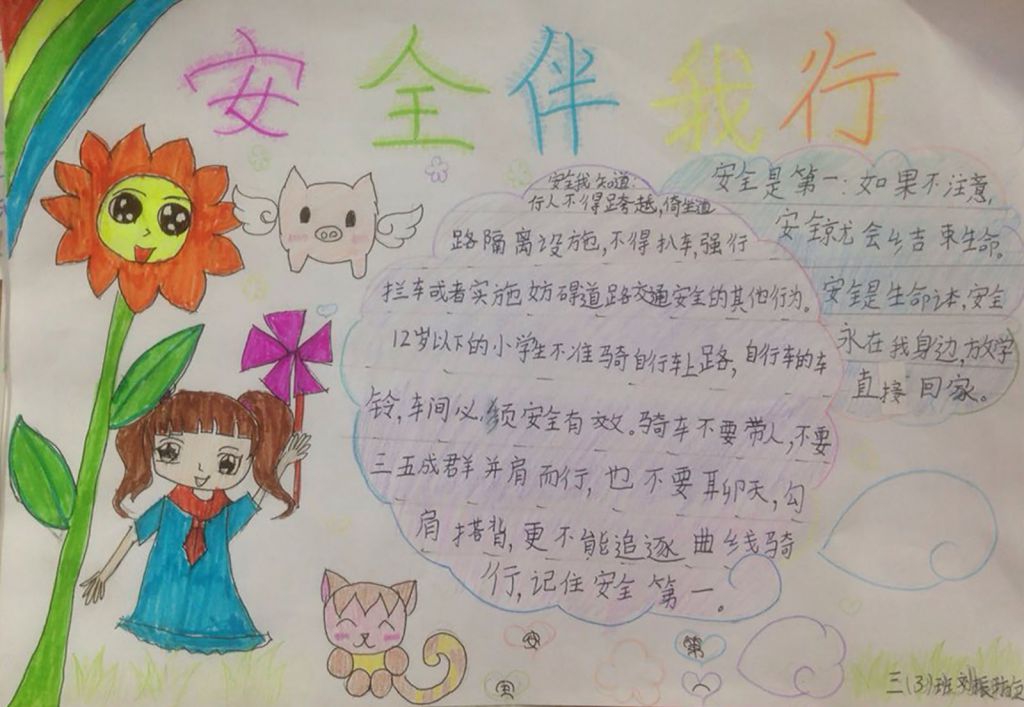 安全伴我行
安全我知道:
行人不得跨越,倚坐道
路隔离设施,不得扒车,强行
拦车或者实施妨碍道路交通安全的其他行为。
12岁以下的小学生不准骑自行车上路,自行车的车
铃,车间必须安全有效。骑车不要带人,不要
三五成群并肩而行,也不要聊天,勾
肩搭背,更不能追逐曲线骑
行,记住安全第一。
安全是第一:如果不注意,
安全就会结束生命。
安全是生命本,安全
永在我身边,放学
直接回家。
安
第
一
三(3)班刘振